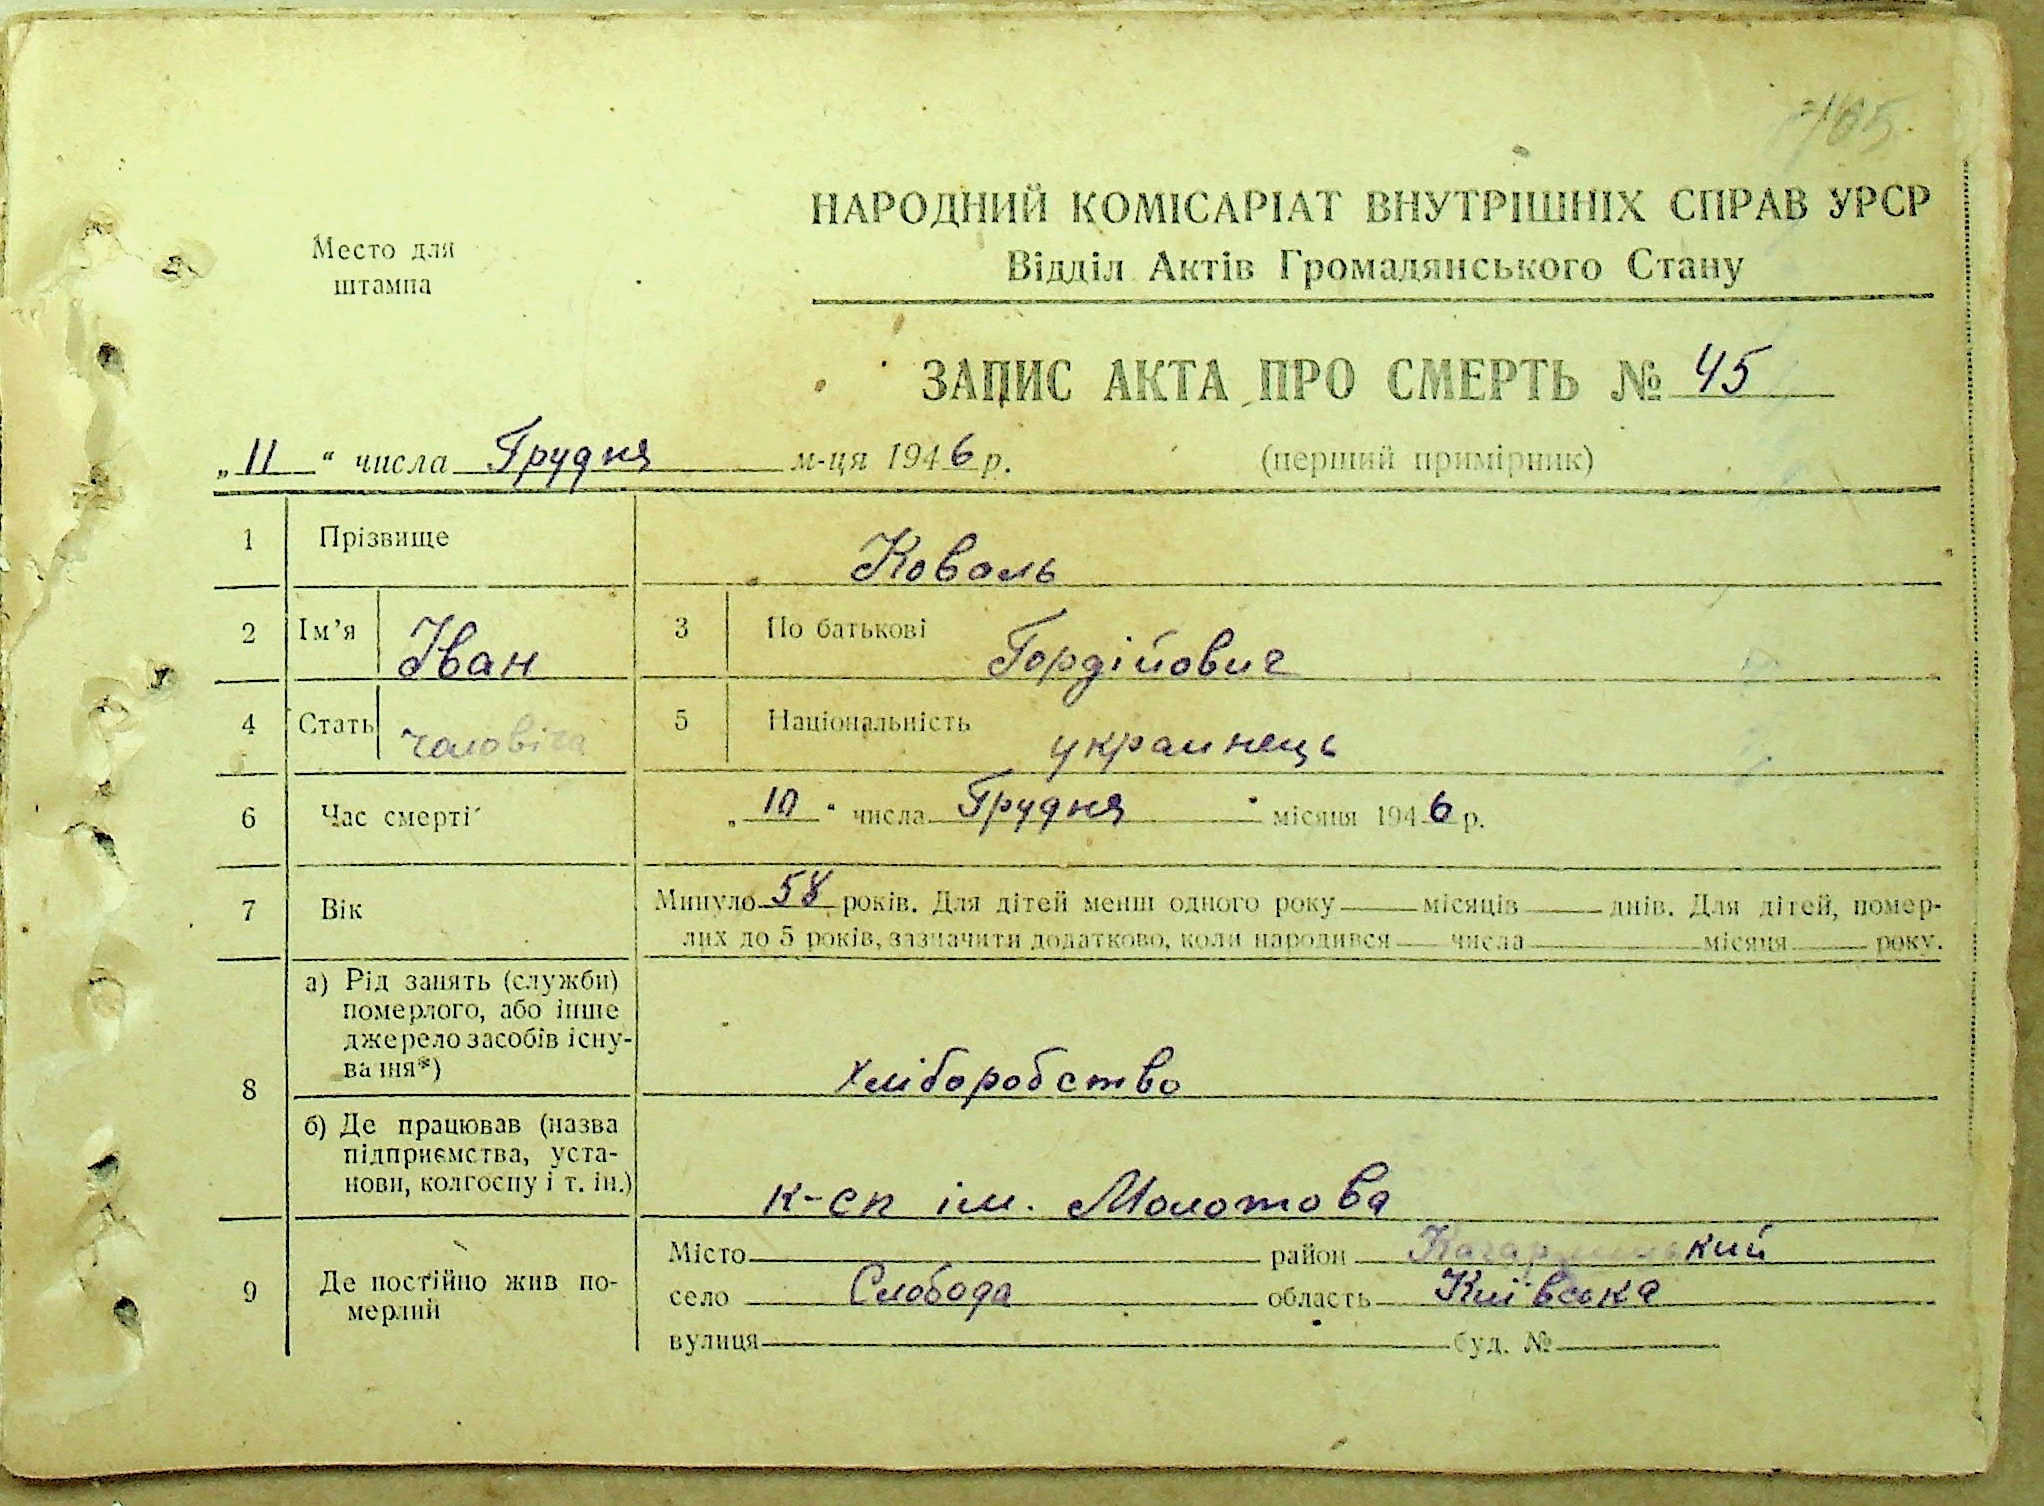 165.
Место для
штампа
НАРОДНИЙ КОМІСАРІАТ ВНУТРІШНІХ СПРАВ УРСР
Відділ Актів Громадянського Стану
ЗАПИС АКТА ПРО СМЕРТЬ № 45
„11“ числа Грудня м-ця 1946 р. (перший примірник)
1 Прізвище Коваль
2 Ім’я Іван 3 По батькові Гордійович
4 Стать чоловіча 5 Національність украинець
6 Час смерті „10“ числа Грудня місяця 1946 р.
7 Вік Минуло 58 років. Для дітей менш одного року — місяців — днів. Для дітей, помер-
лих до 5 років, зазначити додатково, коли народився — числа — місяця — року.
8 а) Рід занять (служби)
померлого, або інше
джерело засобів існу-
вання*) хліборобство
б) Де працював (назва
підприємства, уста-
нови, колгоспу і т. ін.) к-сп ім. Молотова
9 Де постійно жив по-
мерлий
Місто район Кагарлицький
село Слобода область Київська
вулиця буд. №